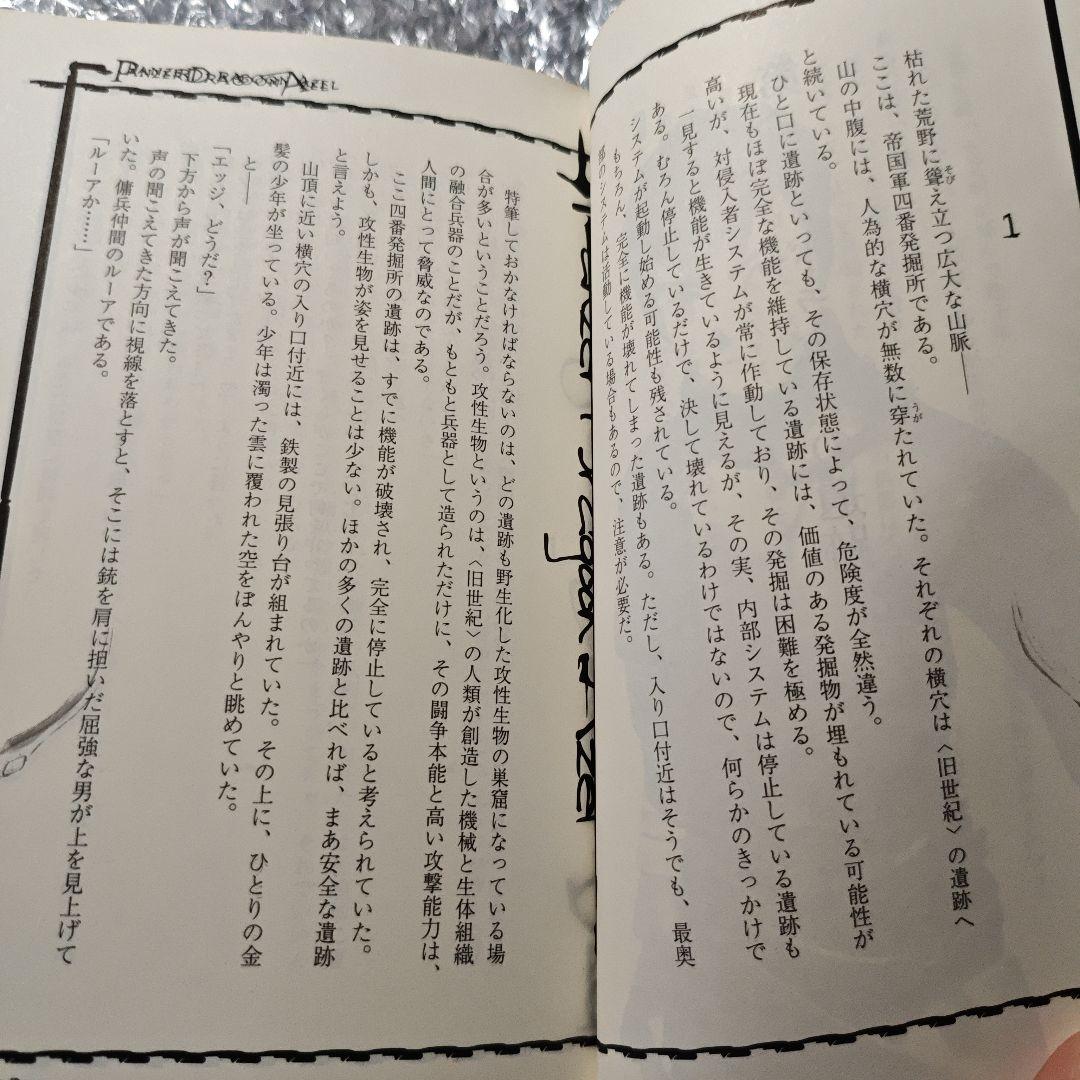 1
枯れた荒野に聳え立つ広大な山脈――
そび
ここは、帝国軍四番発掘所である。
山の中腹には、人為的な横穴が無数に穿たれていた。それぞれの横穴は〈旧世紀〉の遺跡へ
うが
と続いている。
ひと口に遺跡といっても、その保存状態によって、危険度が全然違う。
現在もほぼ完全な機能を維持している遺跡には、価値のある発掘物が埋もれている可能性が
高いが、対侵入者システムが常に作動しており、その発掘は困難を極める。
一見すると機能が生きているように見えるが、その実、内部システムは停止している遺跡も
ある。むろん停止しているだけで、決して壊れているわけではないので、何らかのきっかけで
システムが起動し始める可能性も残されている。
もちろん、完全に機能が壊れてしまった遺跡もある。ただし、入り口付近はそうでも、最奥
部のシステムは活動している場合もあるので、注意が必要だ。
PANZER DRAGOON AZEL
特筆しておかなければならないのは、どの遺跡も野生化した攻性生物の巣窟になっている場
合が多いということだろう。攻性生物というのは、〈旧世紀〉の人類が創造した機械と生体組織
の融合兵器のことだが、もともと兵器として造られただけに、その闘争本能と高い攻撃能力は、
人間にとって脅威なのである。
ここ四番発掘所の遺跡は、すでに機能が破壊され、完全に停止していると考えられていた。
しかも、攻性生物が姿を見せることは少ない。ほかの多くの遺跡と比べれば、まあ安全な遺跡
と言えよう。
山頂に近い横穴の入り口付近には、鉄製の見張り台が組まれていた。その上に、ひとりの金
髪の少年が坐っている。少年は濁った雲に覆われた空をぼんやりと眺めていた。
と――
「エッジ、どうだ?」
下方から声が聞こえてきた。
声の聞こえてきた方向に視線を落とすと、そこには銃を肩に担いだ屈強な男が上を見上げて
いた。傭兵仲間のルーアである。
「ルーアか……」